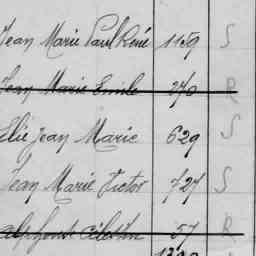 Jean Marie Paul René 1159 S
Jean Marie Emile 270 R
Elie Jean Marie 629 S
Jean Marie Victor 727 S
Alphonse Célestin 57 R